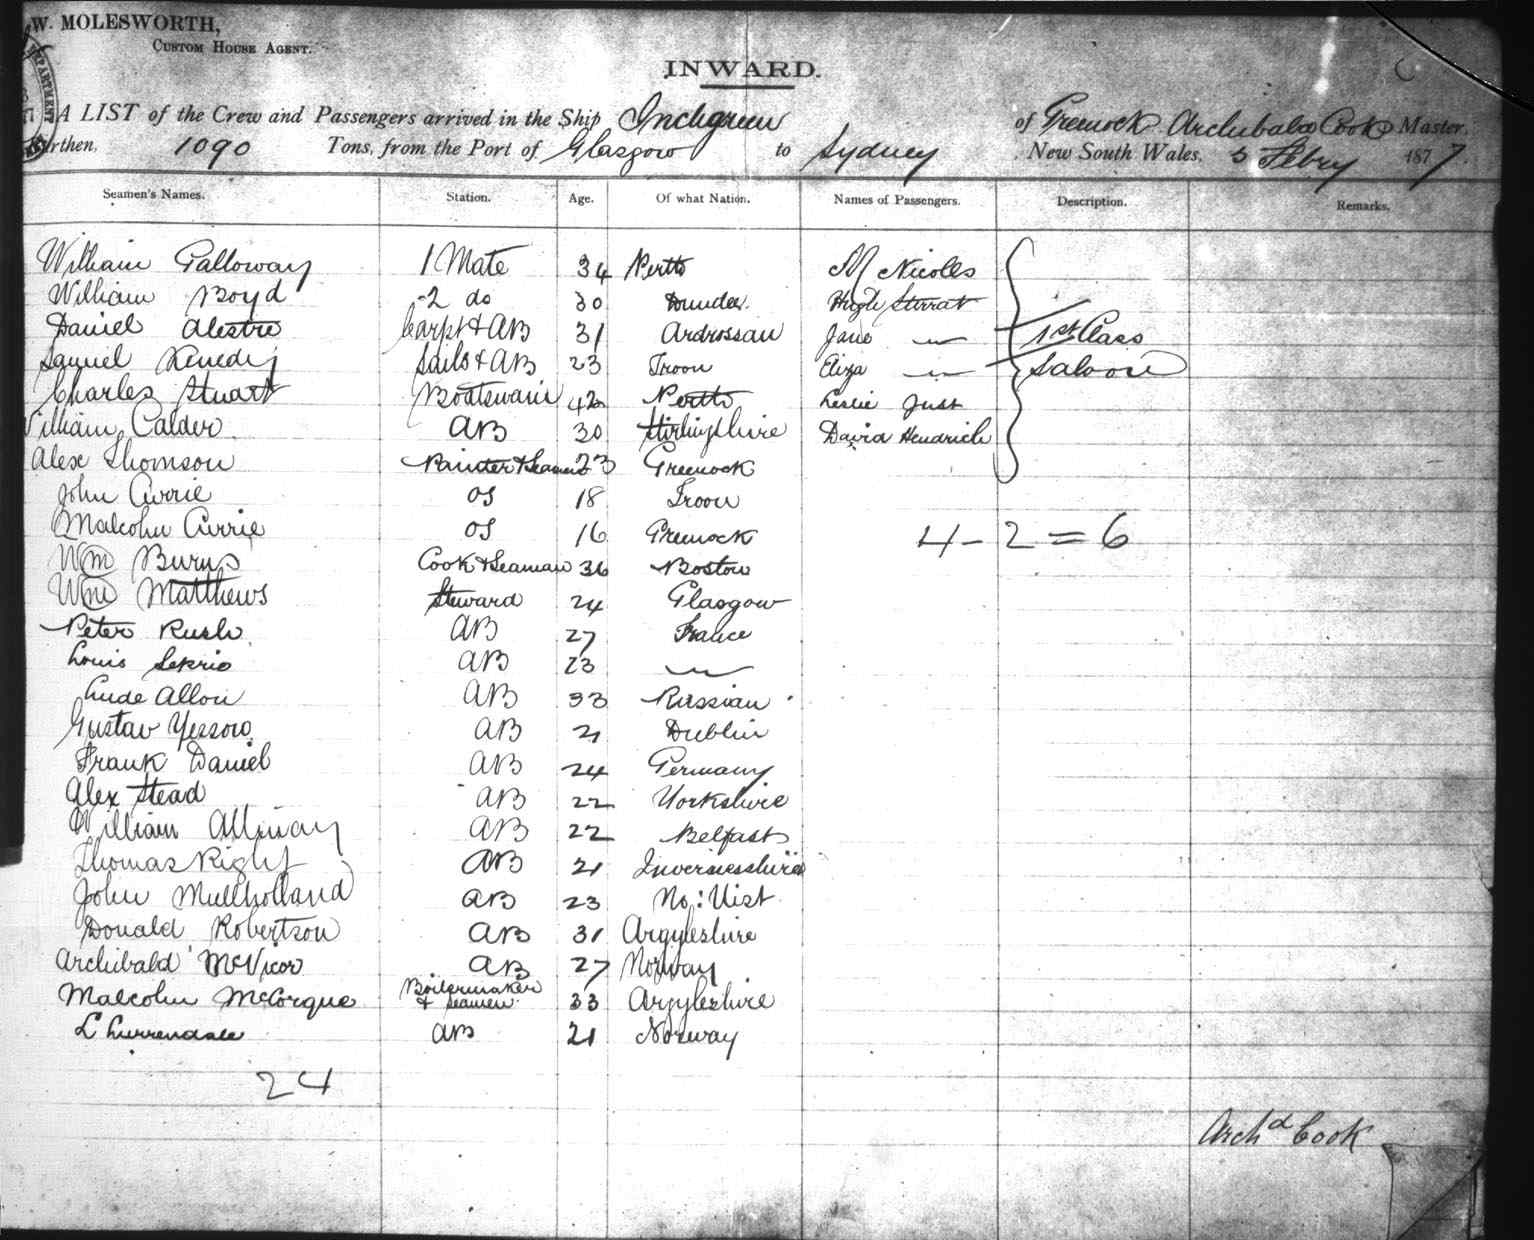 W. MOLESWORTH,
CUSTOM HOUSE AGENT.
INWARD.
A LIST of the Crew and Passengers arrived in the Ship Inchgreen of Greenock Archibald Cook Master,
Burthen, 1090 Tons, from the Port of Glasgow to Sydney New South Wales, 5 Febry 1877.
Seamen's Names. Station. Age. Of what Nation. Names of Passengers. Description. Remarks.
William Galloway 1 Mate 34 Perth Nicolls
William Boyd 2 do 30 Dundee Hugh Stirrat
Daniel Carpt & AB 31 Ardrossan Jane 〃 1st Class
Samuel Kenedy Sails & AB 23 Troon Eliza 〃 Saloon
Charles Stuart Boatswain 42 Perth Leslie Just
William Calder AB 30 Stirlingshire David Hendrick
Alex Thomson Painter & Seaman 23 Greenock
John Currie OS 18 Troon
Malcolm Currie OS 16 Greenock 4 - 2 = 6
Wm Burns Cook & Seaman 36 Boston
Wm Matthews Steward 24 Glasgow
Peter Rush AB 27 France
Louis AB 23 〃
Allon AB 33 Russian
Gustav Yessow AB 21 Dublin
Frank Daniel AB 24 Germany
Alex Stead AB 22 Yorkshire
William AB 22 Belfast
Thomas Right AB 21 Invernesshire
John Mullholland AB 23 No: Uist
Donald Robertson AB 31 Argyleshire
Archibald McVicor AB 27 Norway
Malcolm McCorque Boilermaker & Seamen 33 Argyleshire
L AB 21 Norway
24
Archd Cook